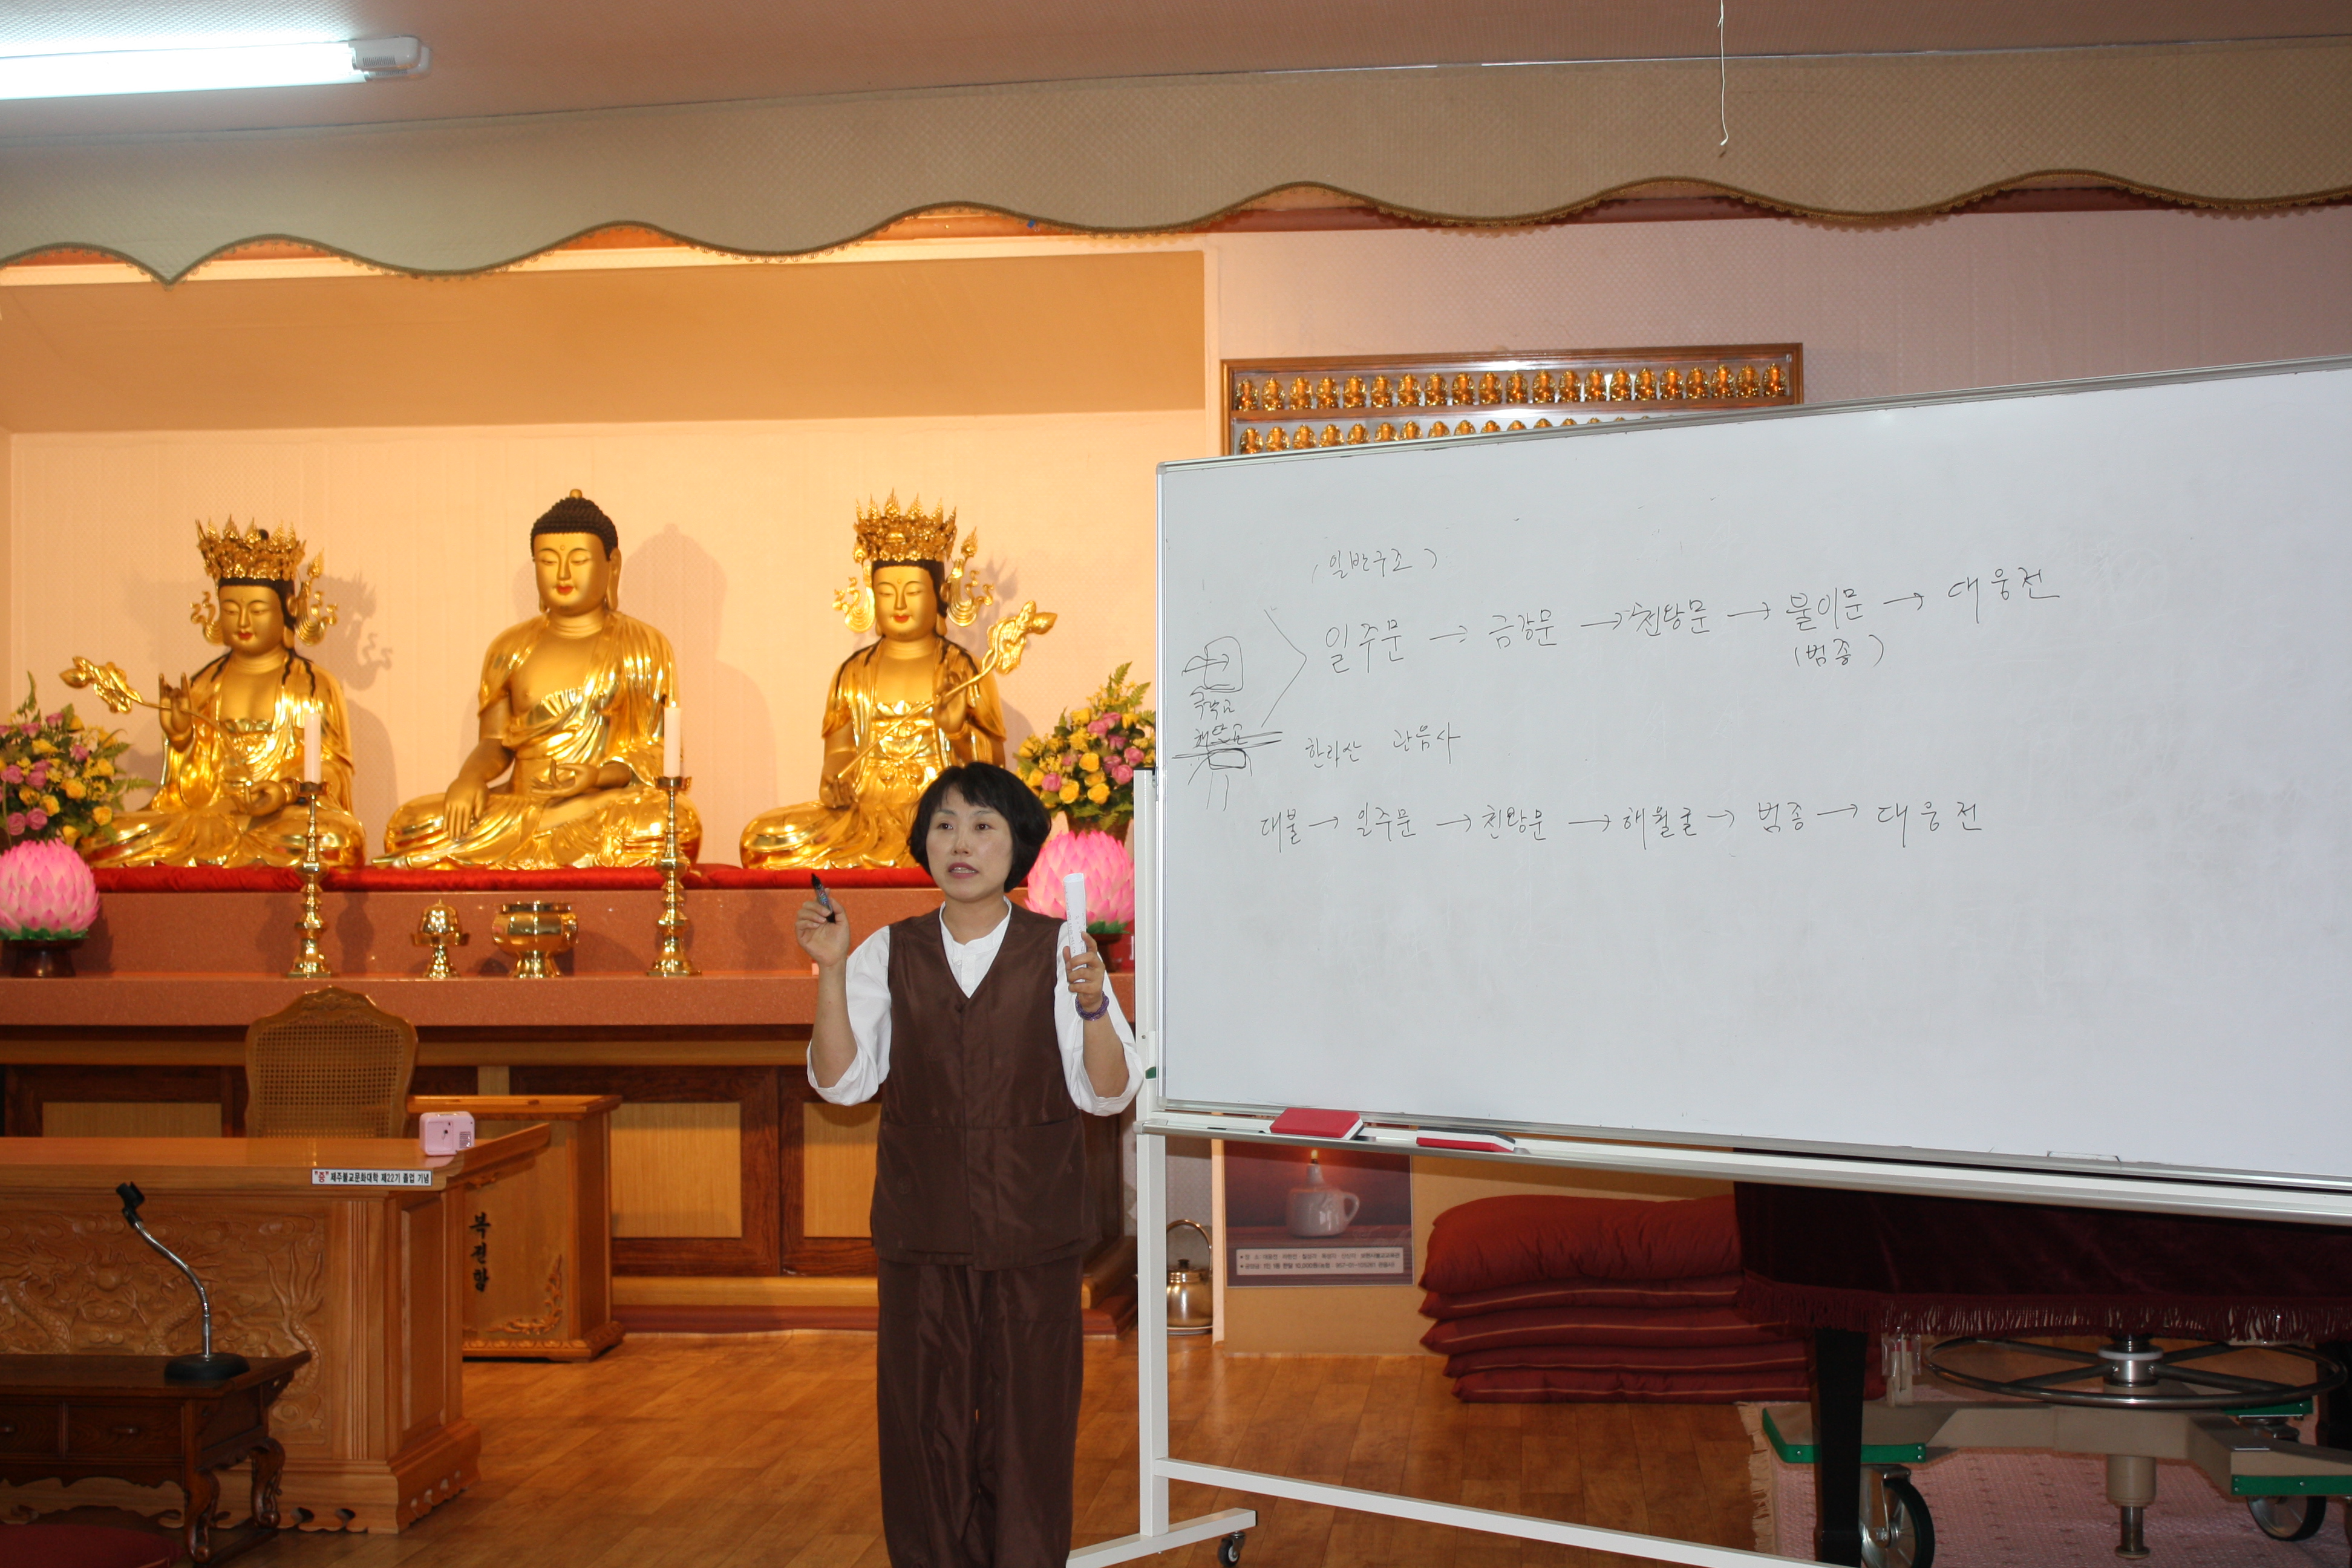 (일반구조)
일주문 → 금강문 → 천왕문 → 불이문 → 대웅전
(범종)
한라산 관음사
대불 → 일주문 → 천왕문 → 해월굴 → 범종 → 대웅전
"증" 제주불교문화대학 제22기 졸업 기념
복전함